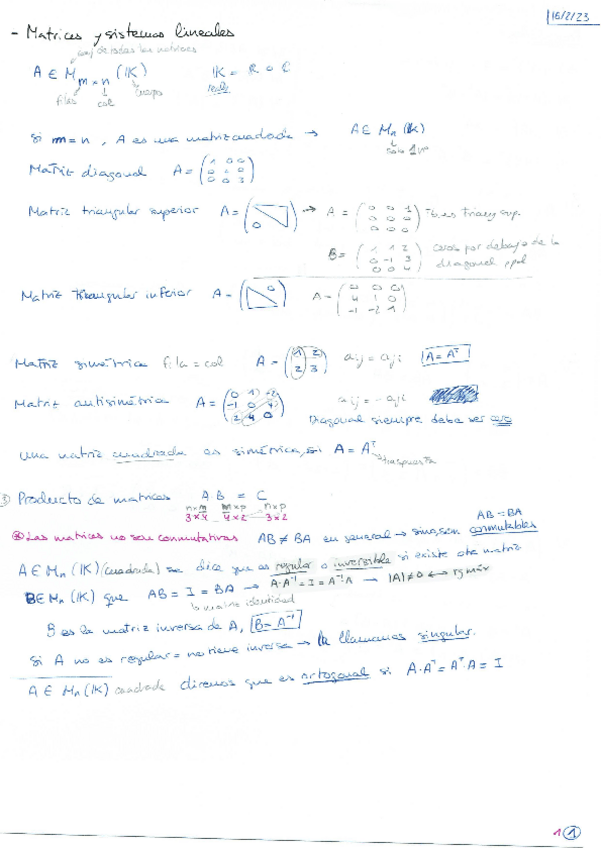 16/2/23
- Matrices y sistemas lineales
conj de todas las matrices
A ∈ M m×n (K) K = R o C
filas col cuerpo reales
si m=n, A es una matriz cuadrada → A ∈ Mn (K)
solo 1 nº
Matriz diagonal A = (1 0 0 / 0 2 0 / 0 0 3)
Matriz triangular superior A = ( 0 ) → A = (0 0 1 / 0 0 0 / 0 0 0) triang sup.
B = (1 1 2 / 0 -1 3 / 0 0 4) ceros por debajo de la diagonal ppal
Matriz triangular inferior A = ( 0 ) A = (0 0 0 / 4 1 0 / -1 -2 1)
Matriz simétrica fila = col A = (1 2 / 2 3) aij = aji A = Aᵀ
Matriz antisimétrica A = aij = -aji
Diagonal siempre debe ser cero
una matriz cuadrada es simétrica, si A = Aᵀ
traspuesta
Producto de matrices A · B = C
n×m m×p n×p
3×4 4×2 3×2
AB = BA
Las matrices no son conmutativas AB ≠ BA en general → si no, son conmutables
A ∈ Mn (K) (cuadrada) se dice que es regular o inversible si existe otra matriz
B ∈ Mn (K) que AB = I = BA → A·A⁻¹ = I = A⁻¹A → |A| ≠ 0 ↔ rg máx
la matriz identidad
B es la matriz inversa de A, B = A⁻¹
Si A no es regular = no tiene inversa → la llamamos singular.
A ∈ Mn (K) cuadrada diremos que es ortogonal si A·Aᵀ = Aᵀ·A = I
1 1